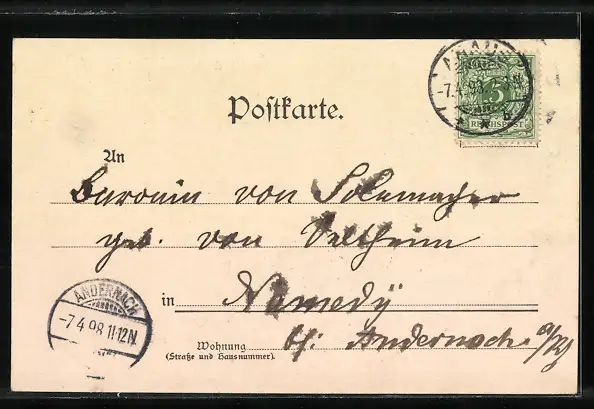 Postkarte.
-7.4.98
5
REICHSPOST
An
Baronin von Solemacher
geb. von Veltheim
in Namedy
bei Andernach a/Rh
Wohnung
(Straße und Hausnummer).
ANDERNACH
-7.4.98.11-12N.